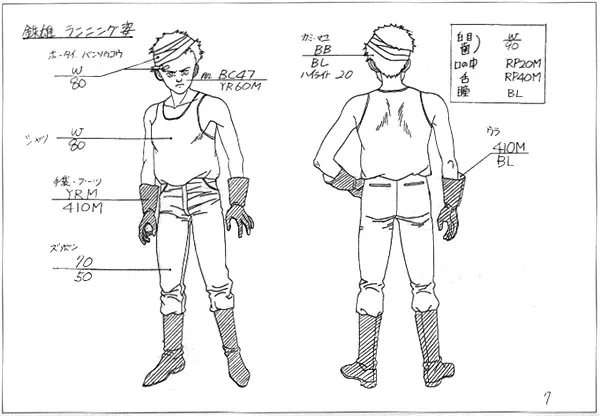 鉄雄 ランニング姿
ホータイ、バンソウコウ
W
80
肌 BC47
YR60M
シャツ
W
80
手袋・ブーツ
YRM
410M
ズボン
70
50
カミ・マユ
BB
BL
ハイライト 20
白目
歯
W
90
口の中 RP20M
舌 RP40M
瞳 BL
ウラ
410M
BL
7